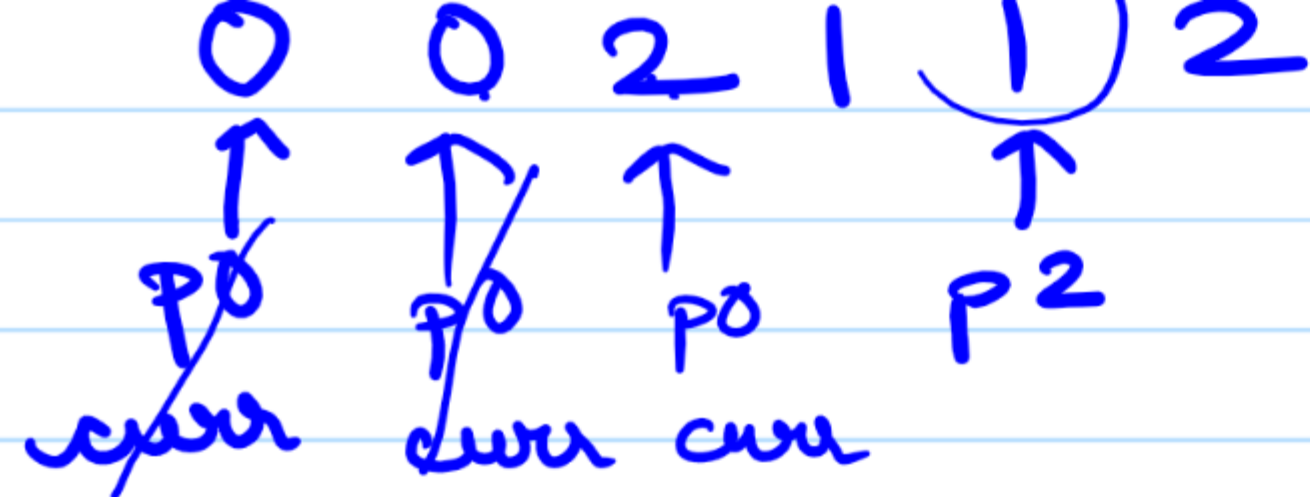 0 0 2 1 1 2
p0 p0 p0 p2
curr curr curr